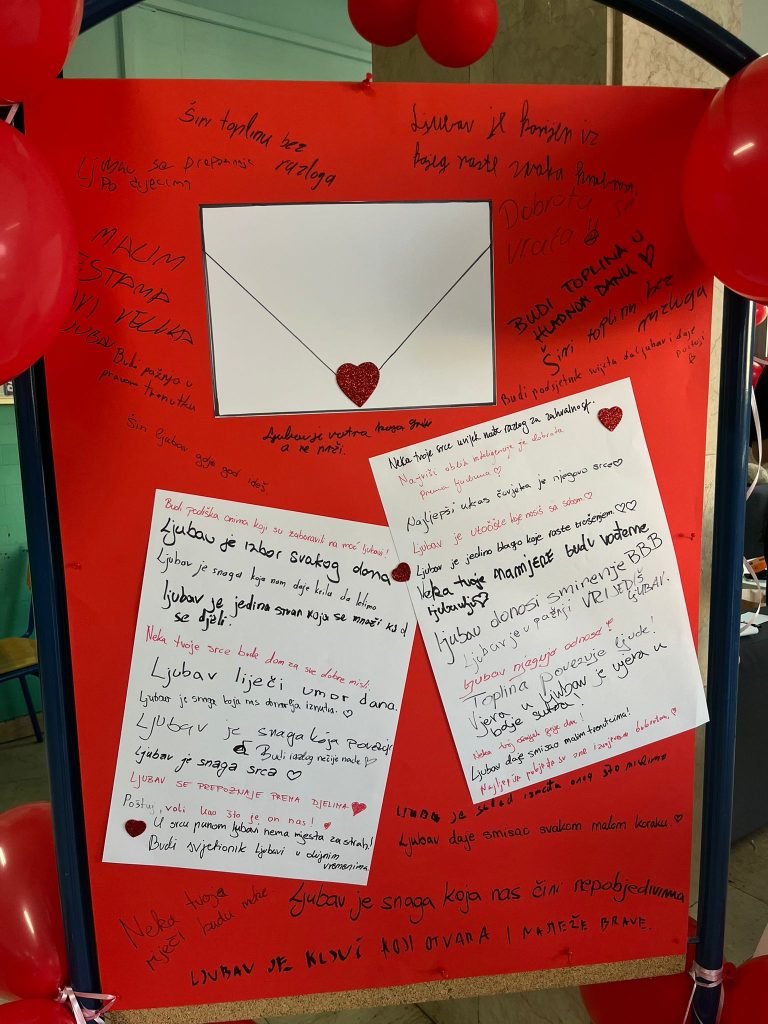 Širi toplinu bez
razloga
Ljubav se prepoznaje
po djelima
Ljubav je korijen iz
kojeg raste svaka
Dobrota se
vraća
MALIM
VELIKA
LJUBAV
BUDI TOPLINA U
HLADNOM DANU ♡
Širi toplinu bez
razloga
Budi pažnja u
pravom trenutku
Budi podsjetnik svijetu da ljubav i dalje
postoji
Širi ljubav gdje god ideš
Ljubav je vatra koja grije
a ne prži.
Neka tvoje srce uvijek nađe razlog za zahvalnost.
Najviši oblik inteligencije je dobrota
prema ljudima ♡
Najljepši ukras čovjeka je njegovo srce ♡
Ljubav je utočište koje nosiš sa sobom ♡
Ljubav je jedino blago koje raste trošenjem. ♡♡
Neka tvoje NAMJERE budu vođene
ljubavlju ♡
Ljubav donosi smirenje BBB
Ljubav je u pažnji VRIJEDIŠ
LJUBAV.
Ljubav njeguje odnose!
Toplina povezuje ljude!
Vjera u ljubav je vjera u
bolje sutra!
Neka tvoj osmijeh
Ljubav daje smisao malim trenutcima!
Najljepše pobjede su one izvojevane dobrotom. ♡
Budi podrška onima koji su zaboravili na moć ljubavi!
Ljubav je izbor svakog dana
Ljubav je snaga koja nam daje krila da letimo
ljubav je jedina stvar koja se množi kad
se djeli.
Neka tvoje srce bude dom za sve dobre misli.
Ljubav liječi umor dana.
Ljubav je snaga koja nas obnavlja iznutra. ♡
Ljubav je snaga koja povezuje
Budi razlog nečije nade ♡
Ljubav je snaga srca ♡
LJUBAV SE PREPOZNAJE PREMA DJELIMA
Poštuj, voli kao što je on nas!
U srcu punom ljubavi nema mjesta za strah!
Budi svjetionik ljubavi u olujnim
vremenima
Ljubav je sklad između onog što mislimo
Ljubav daje smisao svakom malom koraku. ♡
Neka tvoje
riječi budu
Ljubav je snaga koja nas čini nepobjedivima
LJUBAV JE KLJUČ KOJI OTVARA I NAJTEŽE BRAVE.